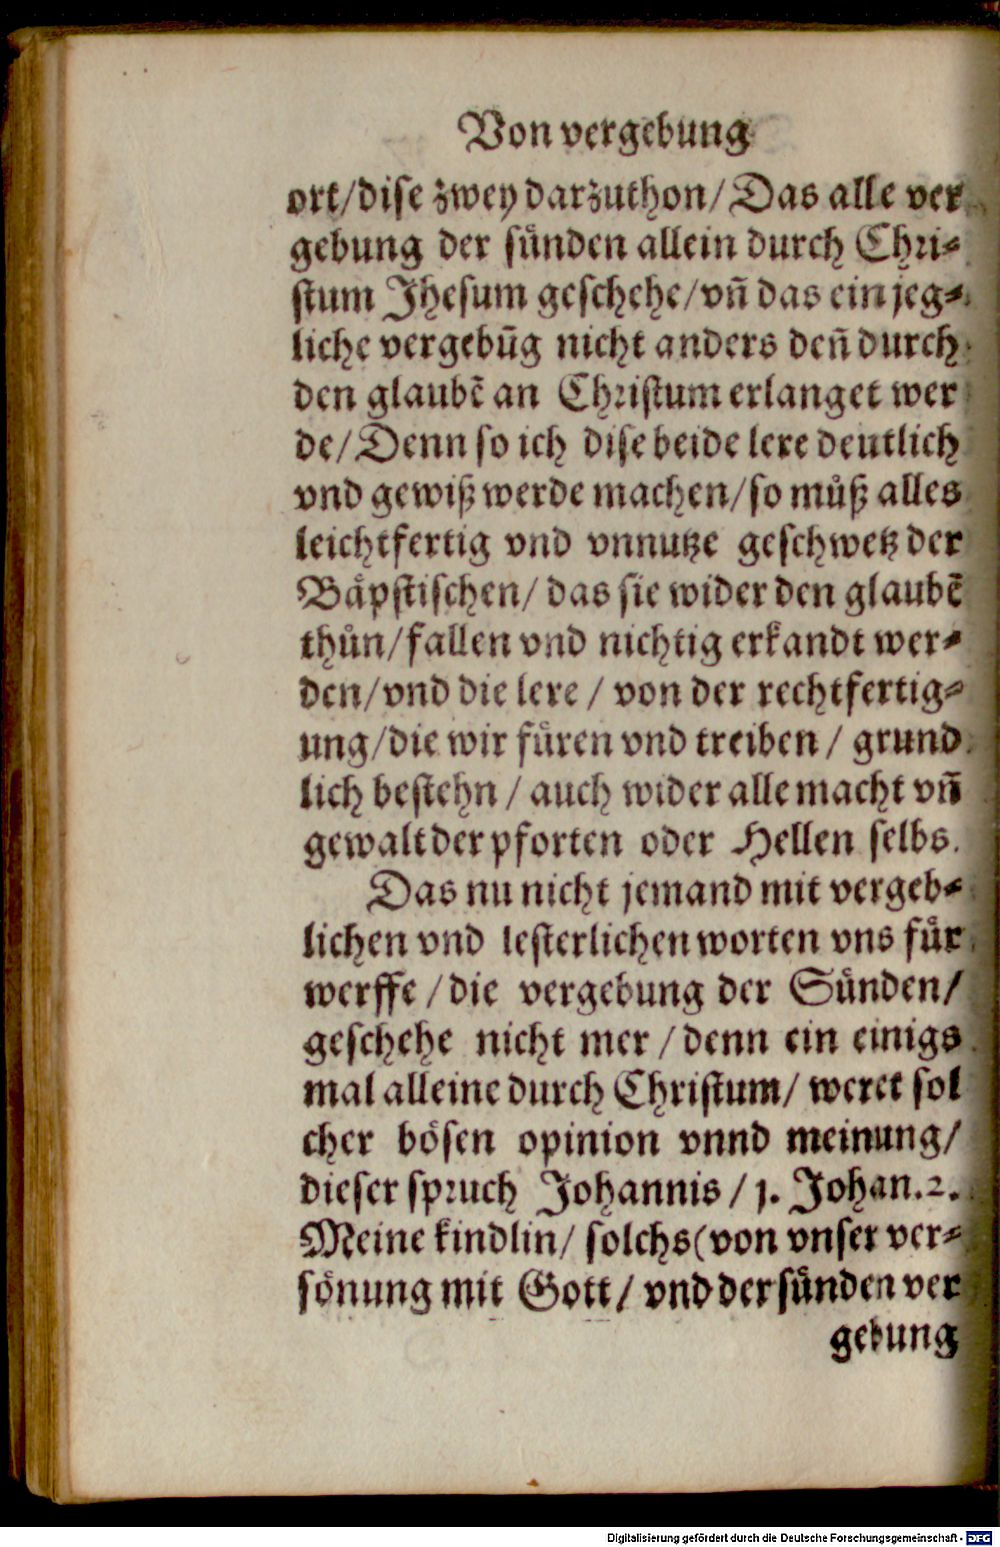 Von vergebung
ort/dise zwey darzuthon/Das alle ver
gebung der sünden allein durch Chri⸗
stum Jhesum geschehe/vñ das ein jeg⸗
liche vergebũg nicht anders deñ durch
den glaubẽ an Christum erlanget wer
de/Denn so ich dise beide lere deutlich
vnd gewiß werde machen/so muͦß alles
leichtfertig vnd vnnutze geschwetz der
Bäpstischen/ das sie wider den glaubẽ
thuͦn/fallen vnd nichtig erkandt wer⸗
den/vnd die lere / von der rechtfertig⸗
ung/die wir füren vnd treiben / grund
lich bestehn / auch wider alle macht vñ
gewalt der pforten oder Hellen selbs.
Das nu nicht jemand mit vergeb⸗
lichen vnd lesterlichen worten vns für
werffe /die vergebung der Sünden/
geschehe nicht mer / denn ein einigs
mal alleine durch Christum/ weret sol
cher bösen opinion vnnd meinung/
dieser spruch Johannis / 1. Johan.2.
Meine kindlin/ solchs(von vnser ver⸗
sönung mit Gott / vnd der sünden ver
gebung
Digitalisierung gefördert durch die Deutsche Forschungsgemeinschaft - DFG